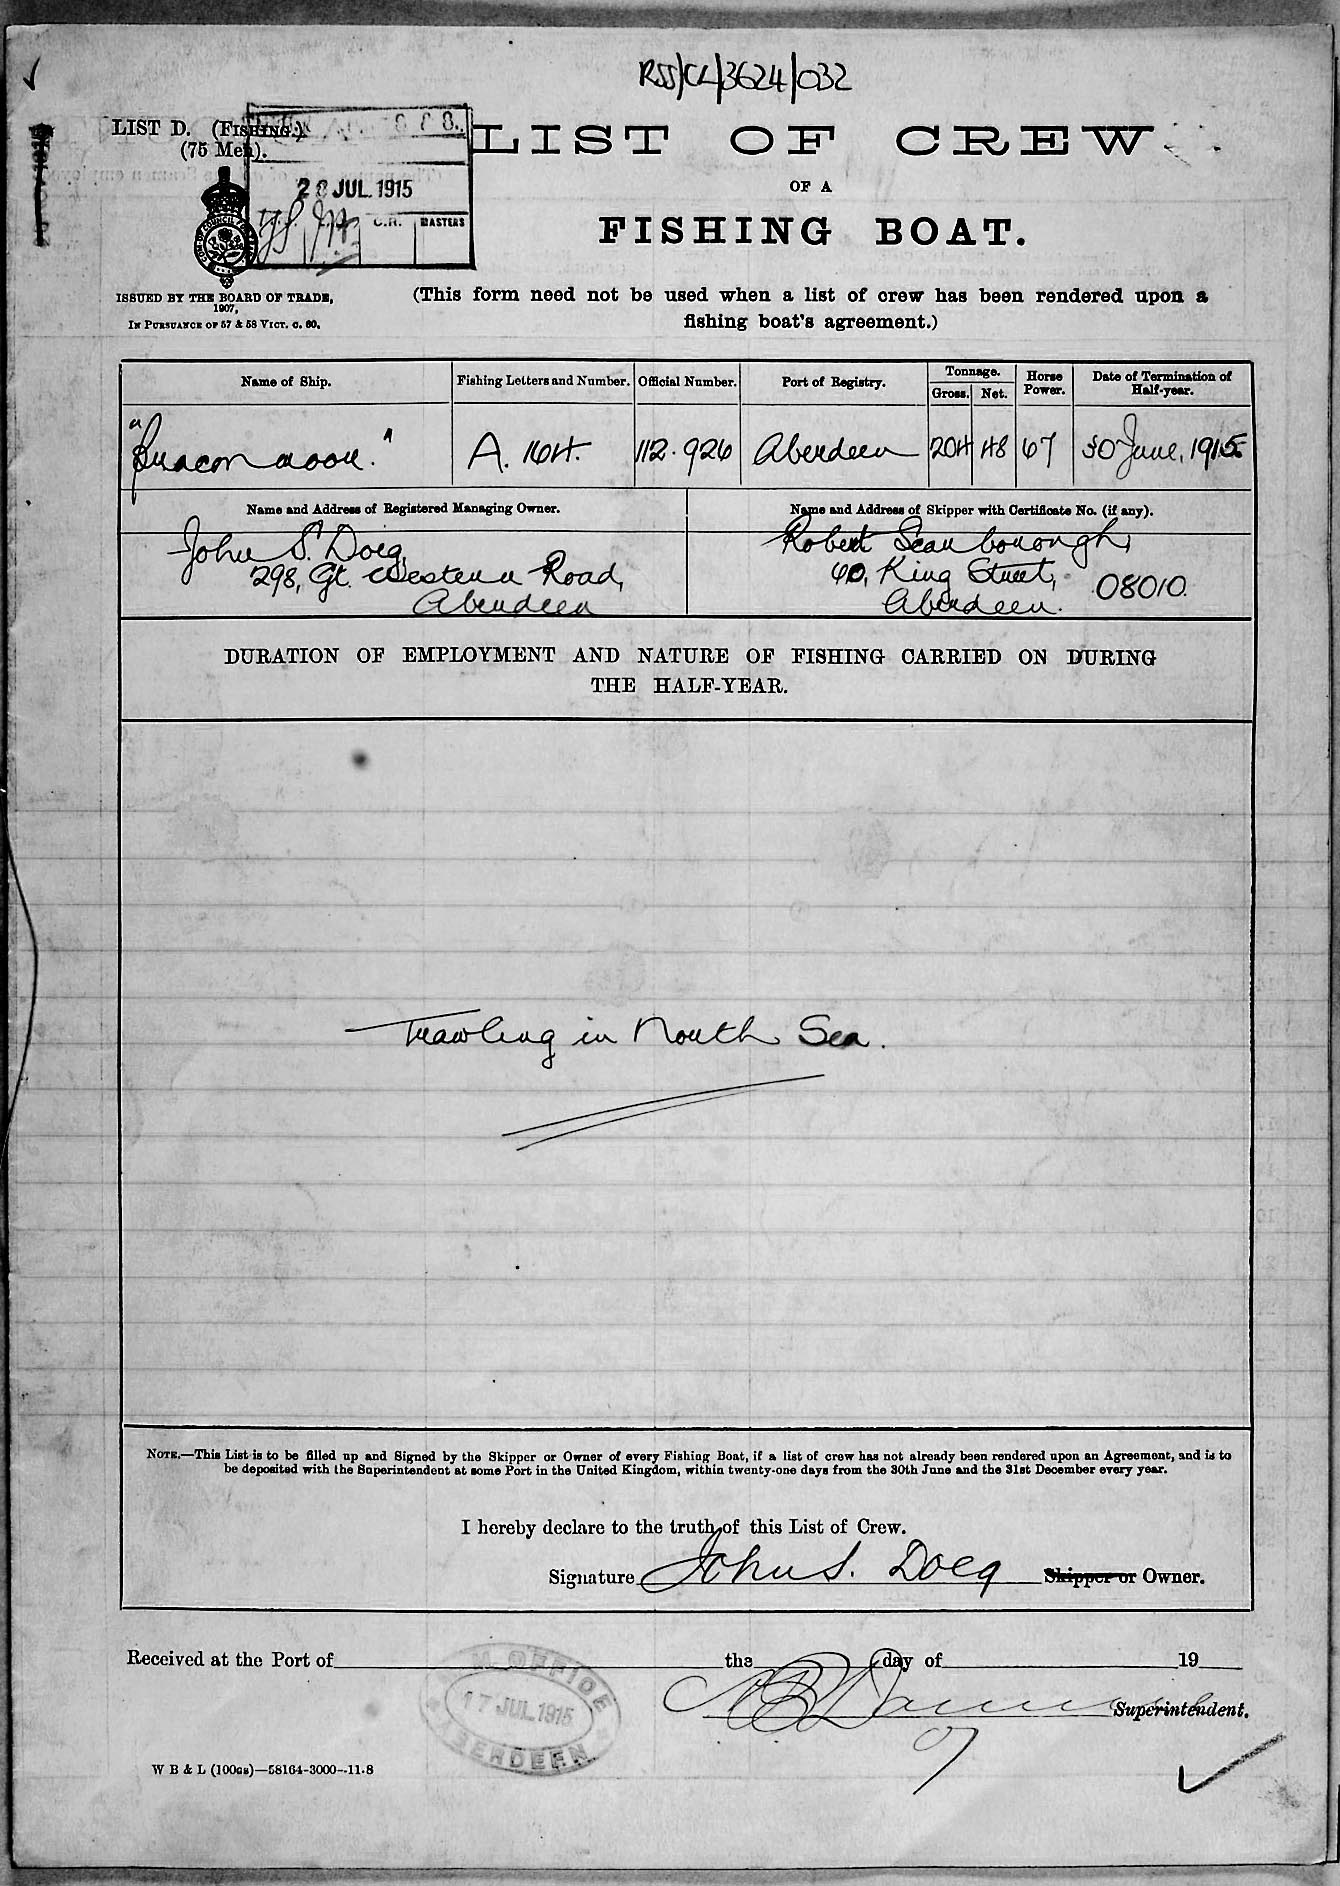 RSS/CL/3624/032
LIST D. (FISHING.)
(75 Men).
20 JUL. 1915
C.R. MASTERS
LIST OF CREW
OF A
FISHING BOAT.
ISSUED BY THE BOARD OF TRADE,
1907,
IN PURSUANCE OF 57 & 58 VICT. C. 60.
(This form need not be used when a list of crew has been rendered upon a
fishing boat's agreement.)
Name of Ship. Fishing Letters and Number. Official Number. Port of Registry. Tonnage. Gross. Net. Horse Power. Date of Termination of Half-year.
A. 164. 112.926 Aberdeen 204 48 67 30 June, 1915
Name and Address of Registered Managing Owner. Name and Address of Skipper with Certificate No. (if any).
John S. Doeg, Robert Scarborough,
298, Gt. Western Road, 40, King Street, 08010.
Aberdeen Aberdeen.
DURATION OF EMPLOYMENT AND NATURE OF FISHING CARRIED ON DURING
THE HALF-YEAR.
Trawling in North Sea.
NOTE.—This List is to be filled up and Signed by the Skipper or Owner of every Fishing Boat, if a list of crew has not already been rendered upon an Agreement, and is to
be deposited with the Superintendent at some Port in the United Kingdom, within twenty-one days from the 30th June and the 31st December every year.
I hereby declare to the truth of this List of Crew.
Signature John S. Doeg Skipper or Owner.
Received at the Port of the day of 19
M OFFICE
17 JUL. 1915
BERDEEN
Superintendent.
W B & L (100gs)—58164-3000--11-8